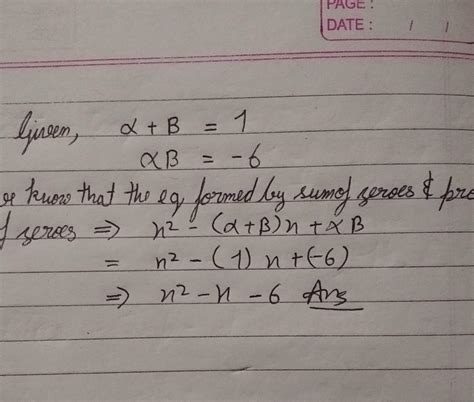 PAGE :
DATE : / /
Given, α + β = 1
αβ = -6
know that the eq formed by sum of zeroes &
zeroes ⇒ x² - (α+β)x + αβ
= x² - (1) x + (-6)
⇒ x² - x - 6 Ans